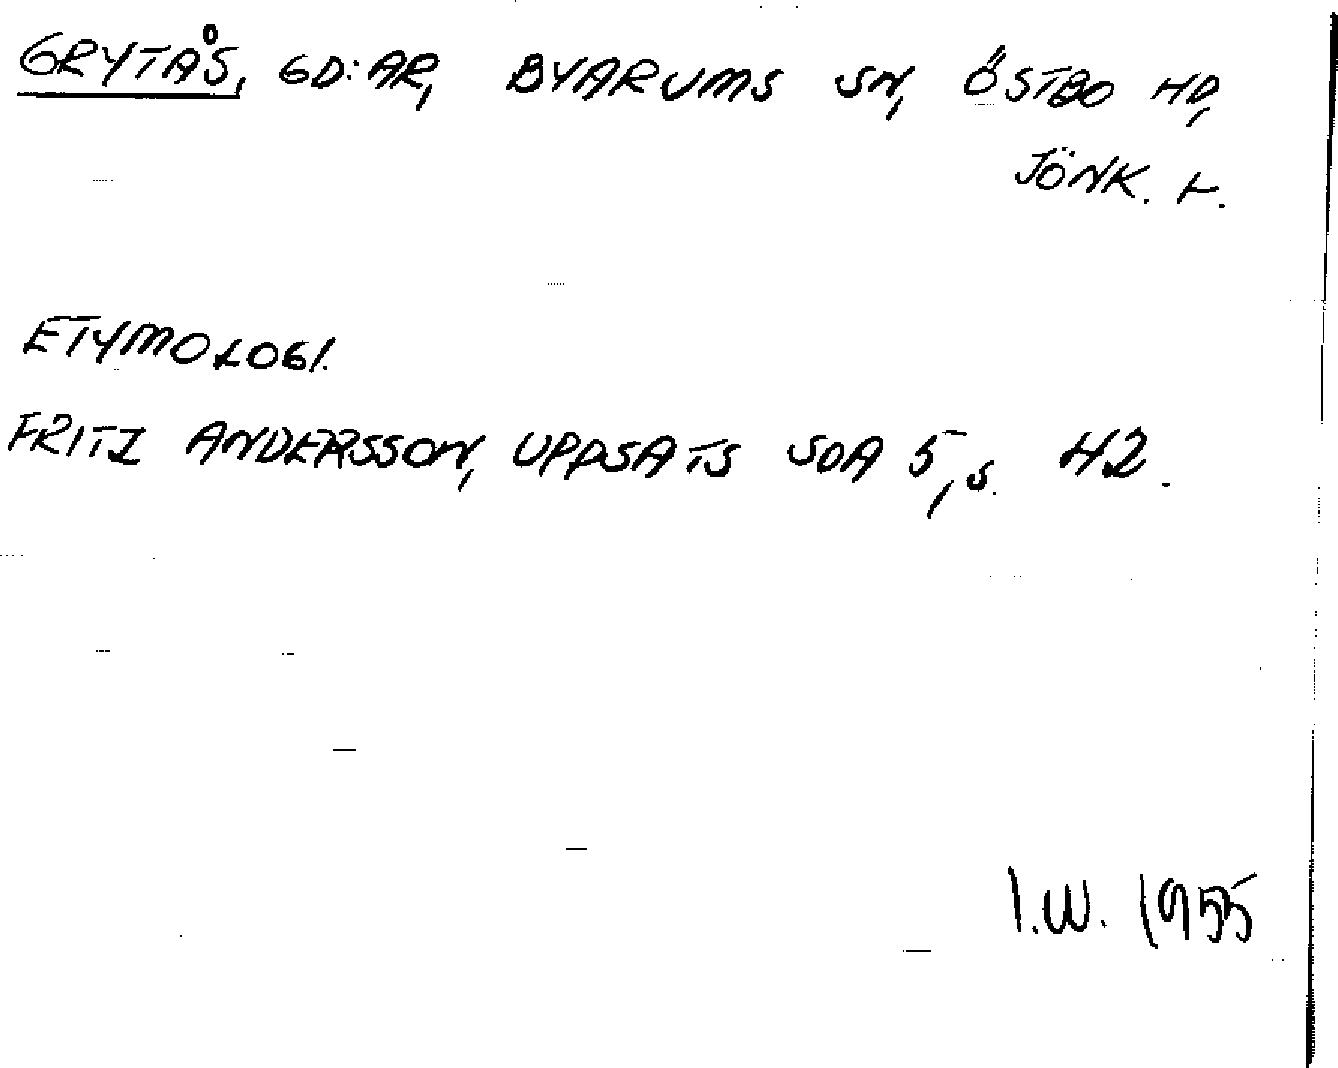 GRYTÅS, GD:AR, BYARUMS SN, ÖSTBO HD,
JÖNK. L.
ETYMOLOGI.
FRITZ ANDERSSON, UPPSATS SOA 5, S. 42.
I.W. 1955